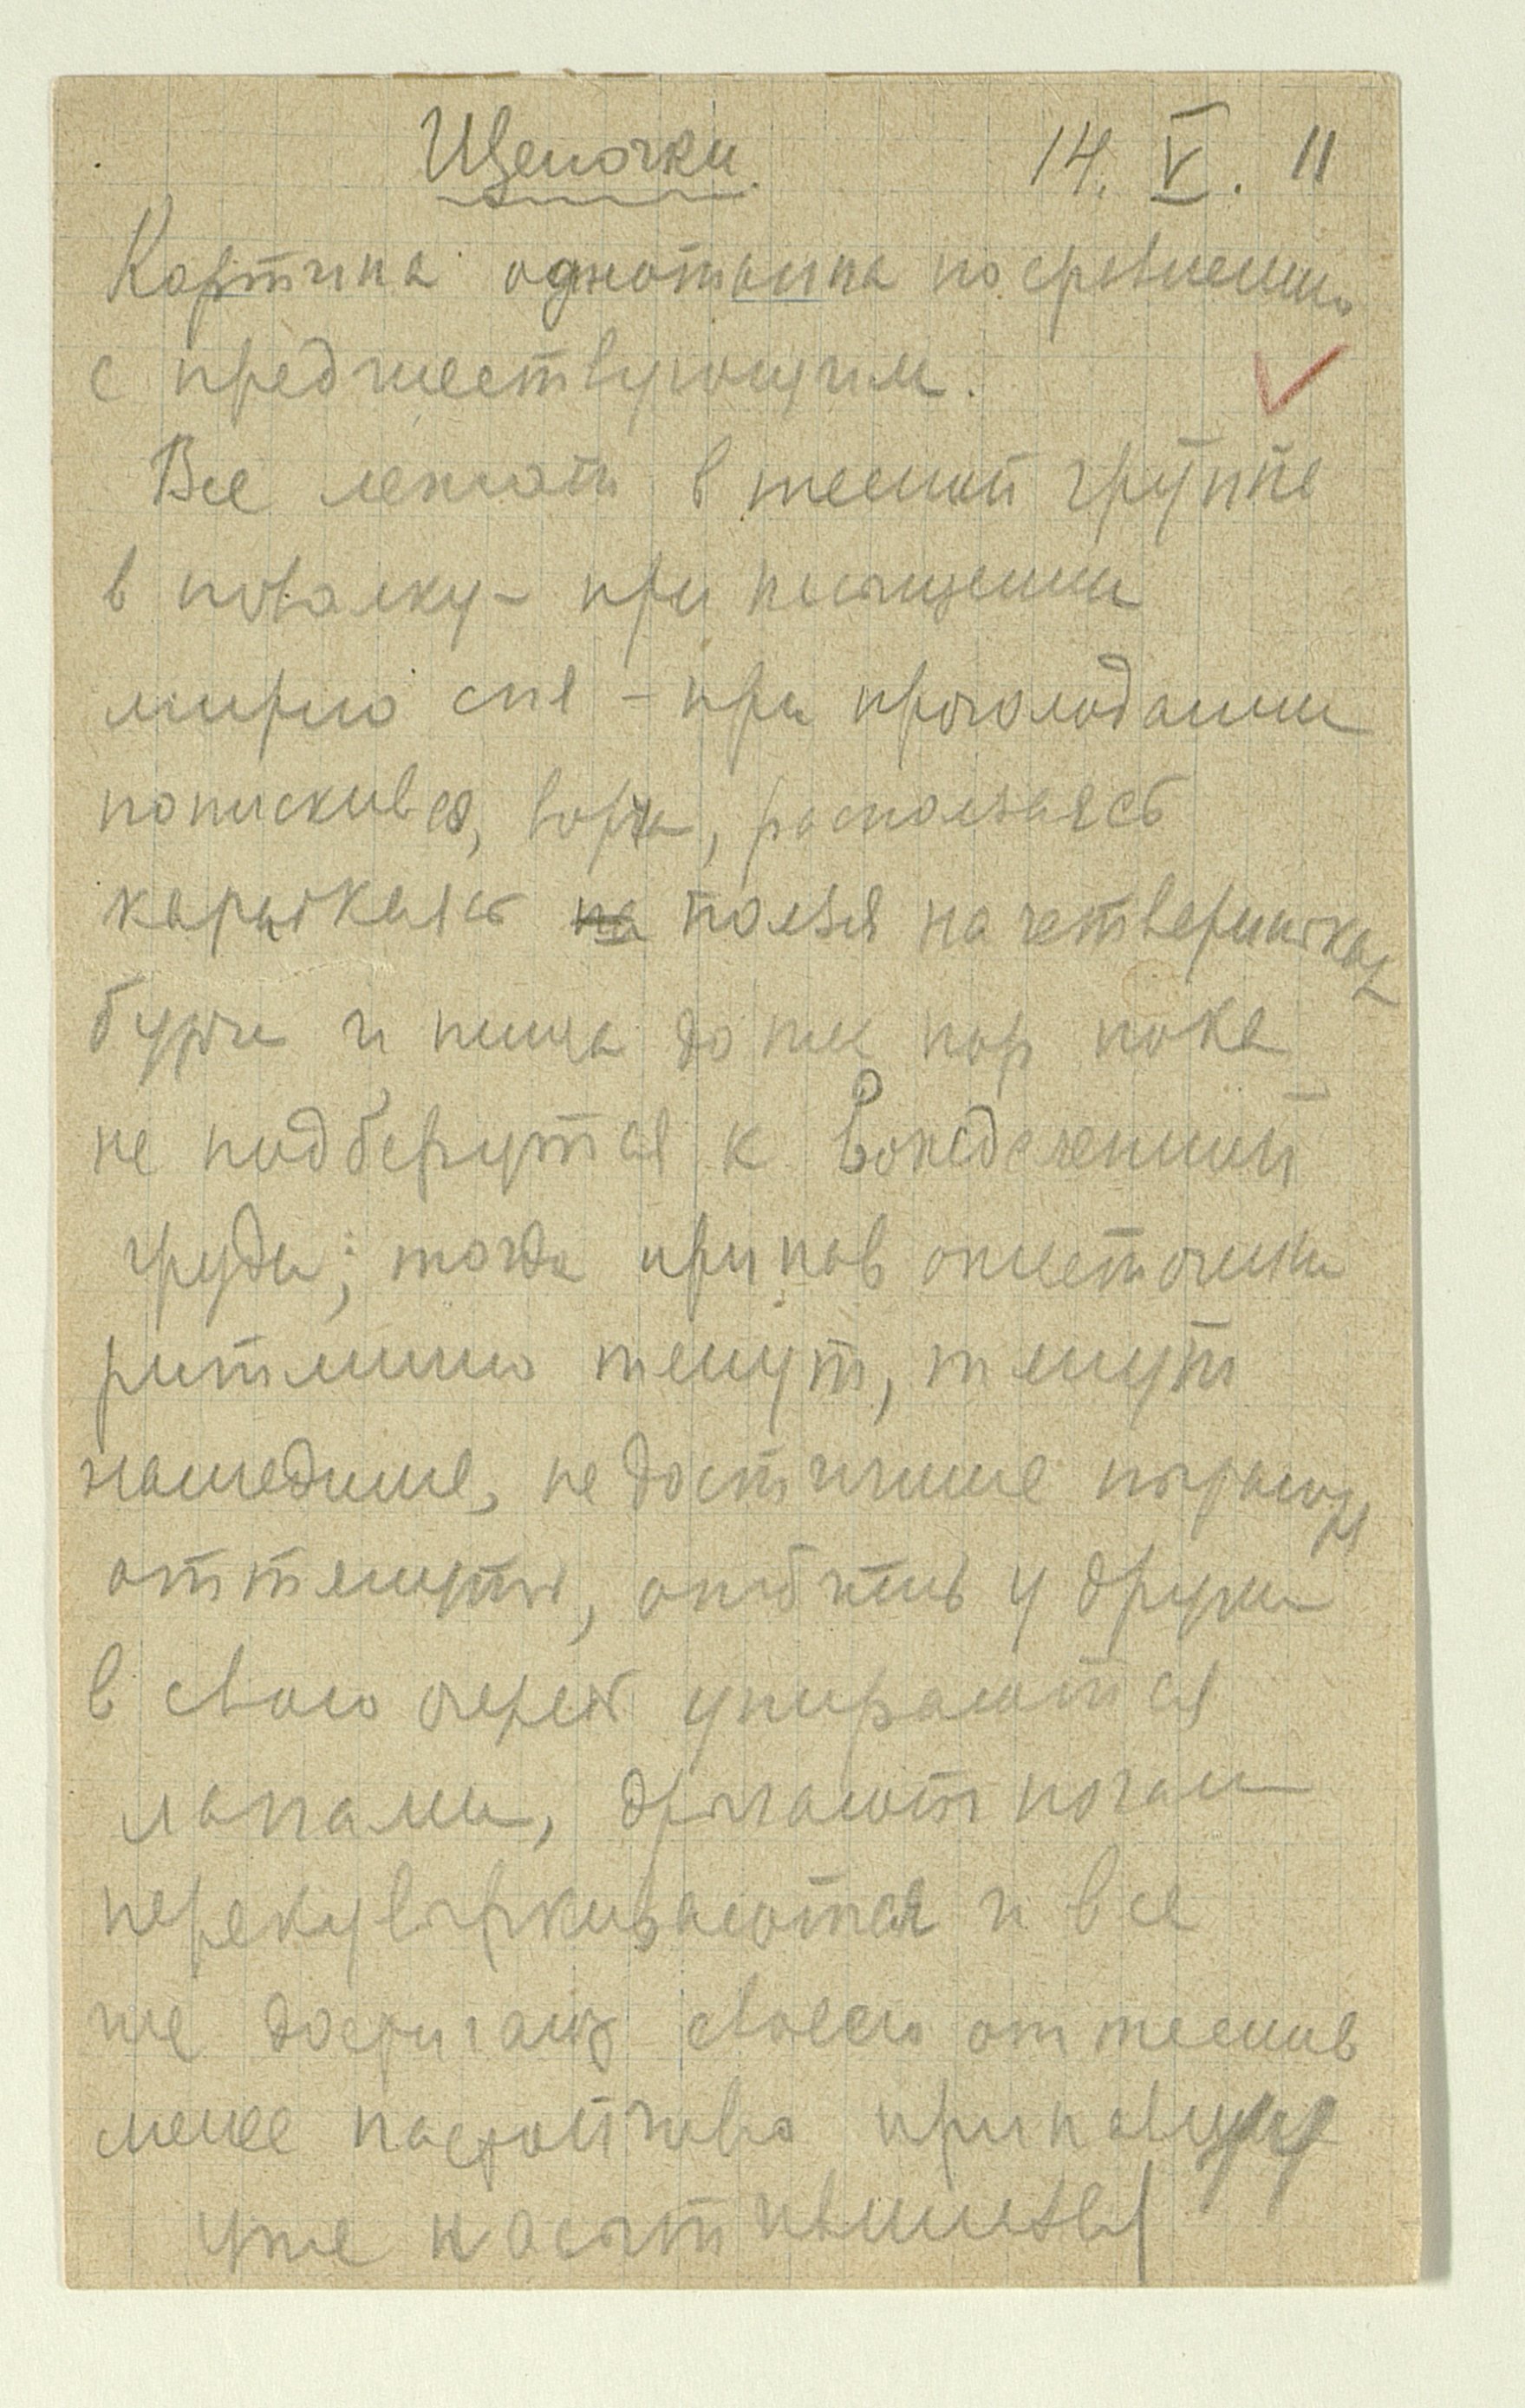 Щеночки. 14. V. 11
Картина однотипна по сравнению
с предшествующим.
Все лежат в тесной группе
в повалку – при насыщении
мирно спя – при проголодании
попискивая, ворча, расползаясь
карабкаясь на ползя на четвереньках
бурча и пища до тех пор пока
не подберутся к вожделенной
груди; тогда припав ожесточенно
ритмично тянут, тянут
нашедшие, не достигшие
у других
в свою очередь упираются
лапами, дрыгают ногами
перекувыркиваются и все
же достигают своего оттеснив
менее настойчиво
уже насытившиеся